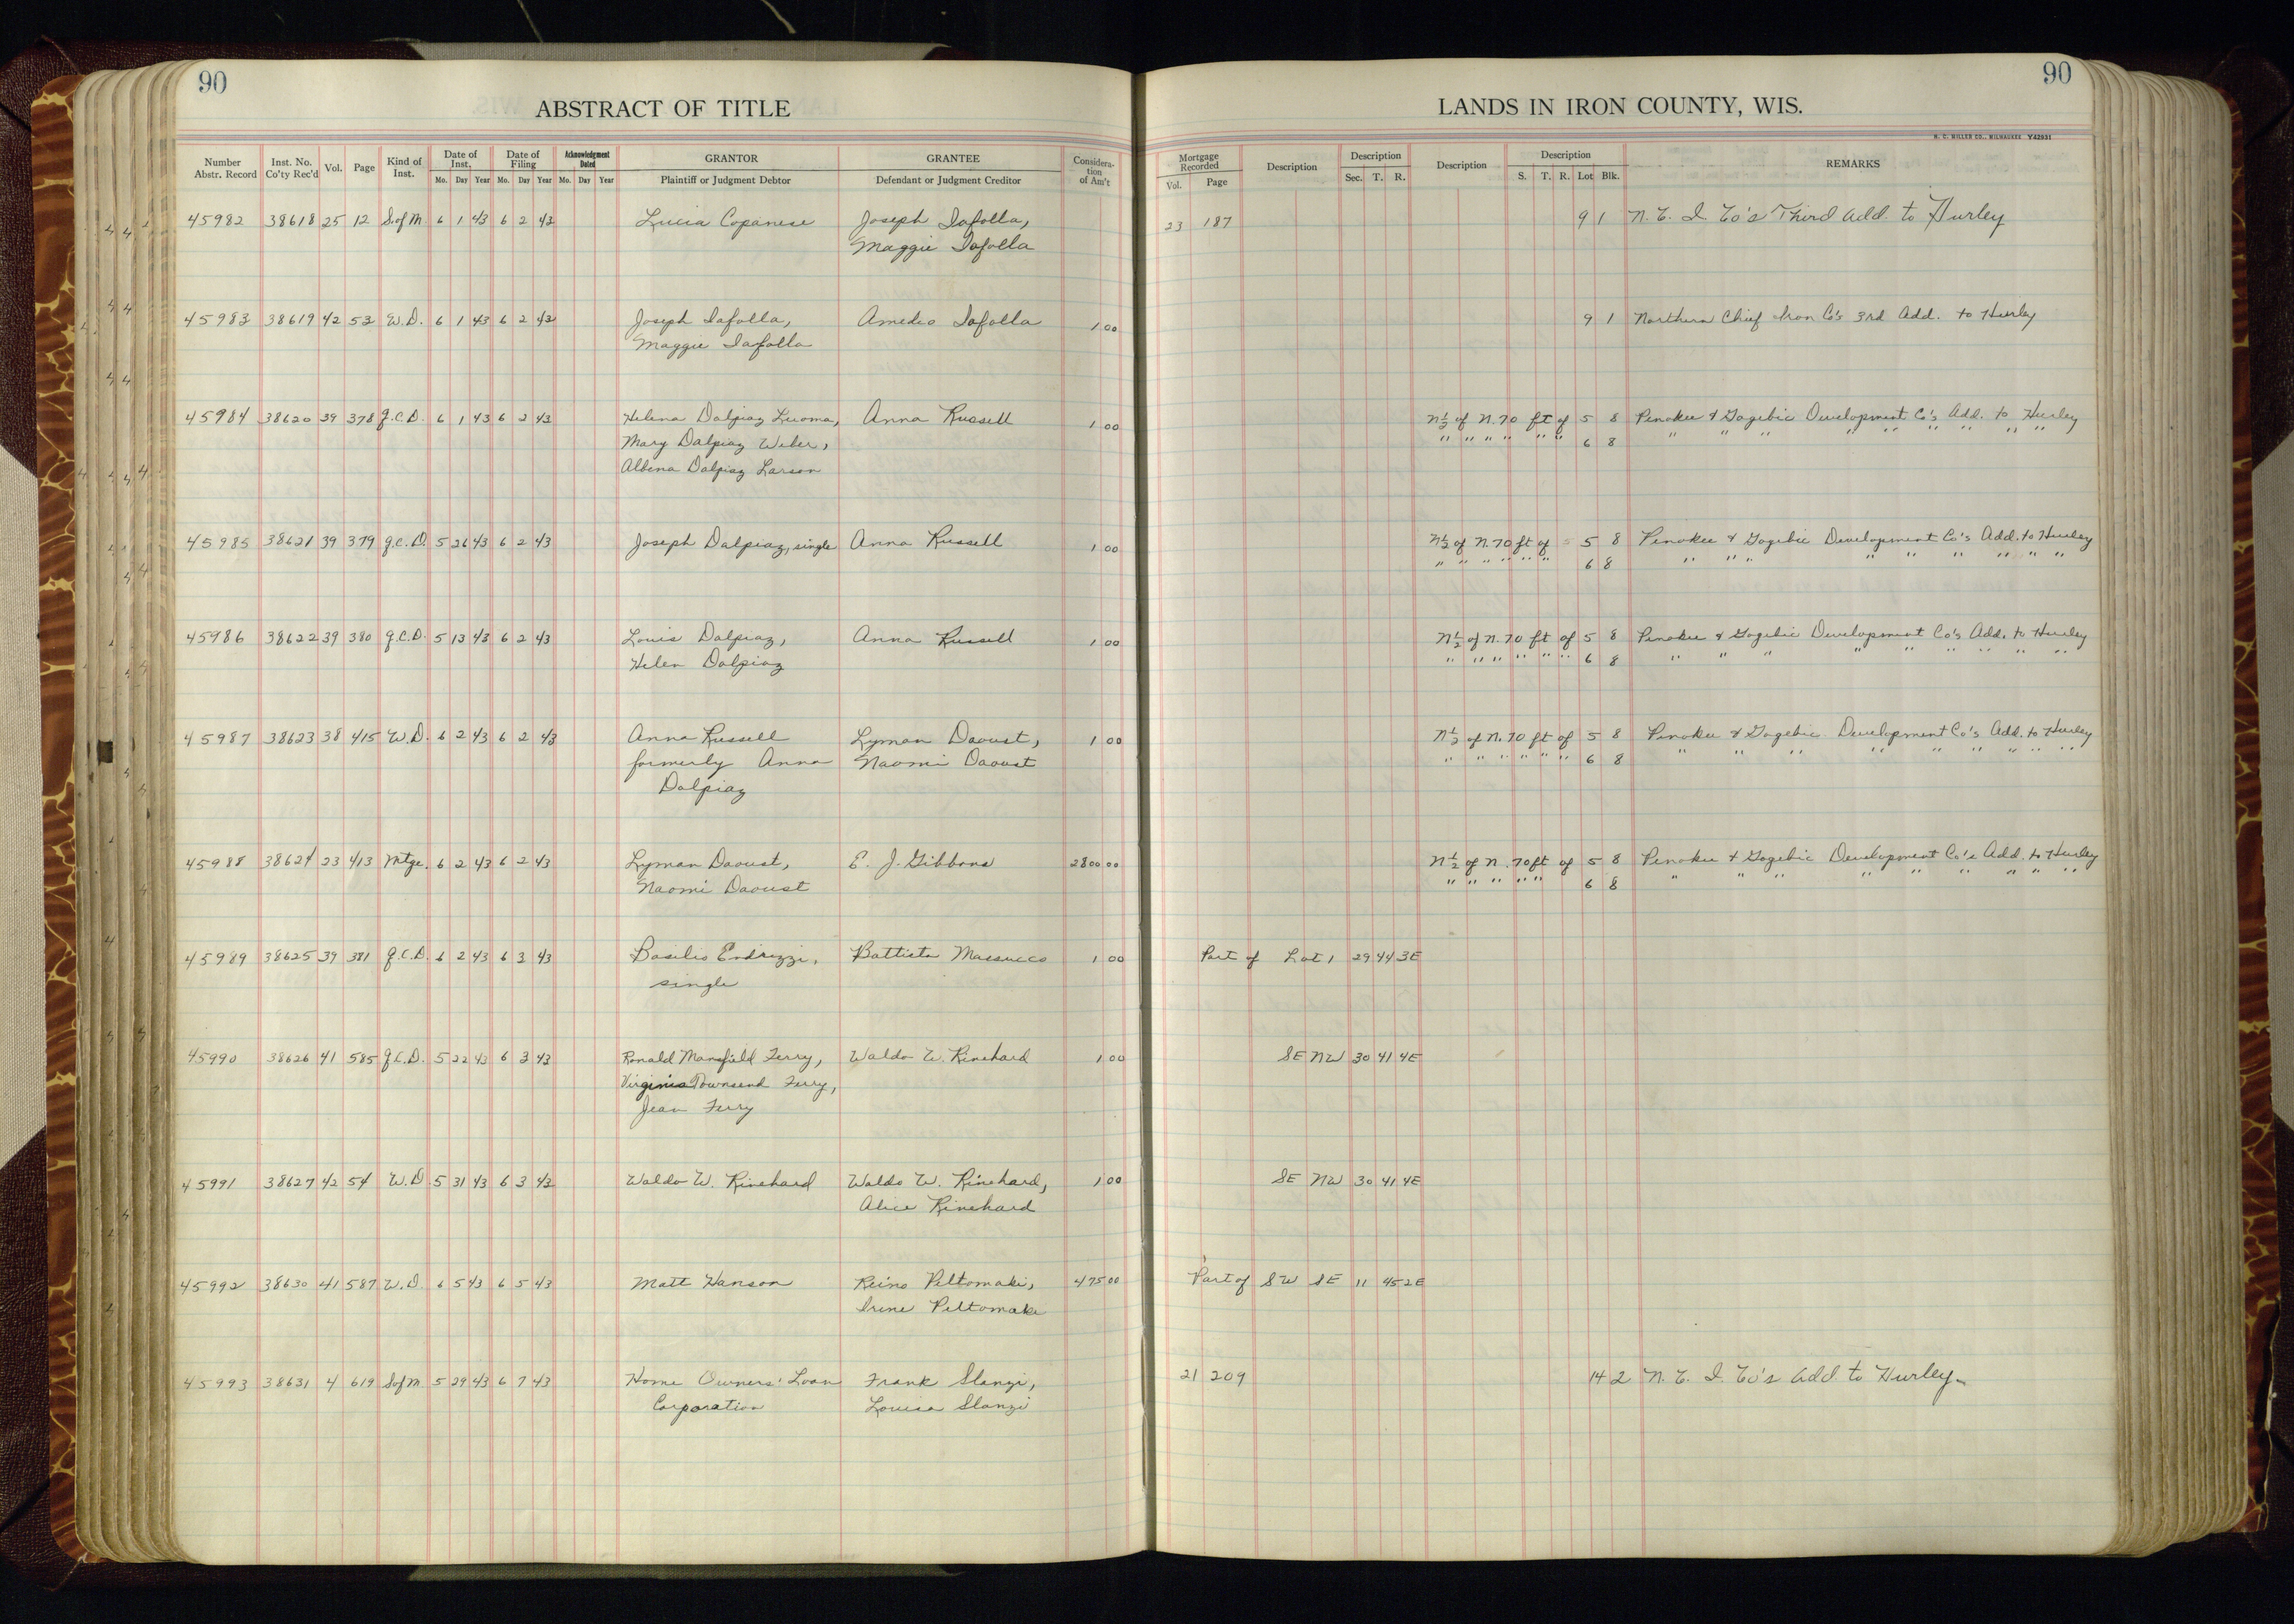 90
90
ABSTRACT OF TITLE
LANDS IN IRON COUNTY, WIS.
H. C. MILLER CO., MILWAUKEE Y42931
Number Abstr. Record Inst. No. Co'ty Rec'd Vol. Page Kind of Inst. Date of Inst. Mo. Day Year Date of Filing Mo. Day Year Acknowledgment Dated Mo. Day Year GRANTOR Plaintiff or Judgment Debtor GRANTEE Defendant or Judgment Creditor Considera-tion of Am't Mortgage Recorded Vol. Page Description Description Sec. T. R. Description Description S. T. R. Lot Blk. REMARKS
45982 38618 25 12 S.of M. 6 1 43 6 2 43 Lucia Copanese Joseph Iafolla, 23 187 9 1 N. C. I. Co's Third Add. to Hurley
Maggie Iafolla
45983 38619 42 53 W.D. 6 1 43 6 2 43 Joseph Iafolla, Amedeo Iafolla 1 00 9 1 Northern Chief Iron Co's 3rd Add. to Hurley
Maggie Iafolla
45984 38620 39 378 Q.C.D. 6 1 43 6 2 43 Helena Dalpiaz Luoma, Anna Russell 1 00 N½ of N. 70 ft of 5 8 Penokee & Gogebic Development Co's Add. to Hurley
Mary Dalpiaz Weber, " " " " " " 6 8 " " " " " " " " "
Albena Dalpiaz Larson
45985 38621 39 379 Q.C.D. 5 26 43 6 2 43 Joseph Dalpiaz, single Anna Russell 1 00 N½ of N. 70 ft of 5 8 Penokee & Gogebic Development Co's Add. to Hurley
" " " " " " 6 8 " " " " " " " " "
45986 38622 39 380 Q.C.D. 5 13 43 6 2 43 Louis Dalpiaz, Anna Russell 1 00 N½ of N. 70 ft of 5 8 Penokee & Gogebic Development Co's Add. to Hurley
Helen Dalpiaz " " " " " " 6 8 " " " " " " " " "
45987 38623 38 415 W.D. 6 2 43 6 2 43 Anna Russell Lyman Daoust, 1 00 N½ of N. 70 ft of 5 8 Penokee & Gogebic Development Co's Add. to Hurley
formerly Anna Naomi Daoust " " " " " " 6 8 " " " " " " " " "
Dalpiaz
45988 38624 23 413 Mtge. 6 2 43 6 2 43 Lyman Daoust, E. J. Gibbons 2800 00 N½ of N. 70 ft of 5 8 Penokee & Gogebic Development Co's Add. to Hurley
Naomi Daoust " " " " " 6 8 " " " " " " " " "
45989 38625 39 381 Q.C.D. 6 2 43 6 3 43 Basilio Endrizzi, Battista Massucco 1 00 Part of Lot 1 29 44 3E
single
45990 38626 41 585 Q.C.D. 5 22 43 6 3 43 Ronald Mansfield Ferry, Waldo W. Rinehard 1 00 SE NW 30 41 4E
Virginia Townsend Ferry,
Jean Ferry
45991 38627 42 54 W.D 5 31 43 6 3 43 Waldo W. Rinehard Waldo W. Rinehard, 1 00 SE NW 30 41 4E
Alice Rinehard
45992 38630 41 587 W.D. 6 5 43 6 5 43 Matt Hanson Reino Peltomaki, 475 00 Part of SW SE 11 45 2E
Irene Peltomaki
45993 38631 4 619 S.of M. 5 29 43 6 7 43 Home Owners' Loan Frank Slanzi, 21 209 14 2 N. C. I. Co's Add. to Hurley
Corporation Louisa Slanzi